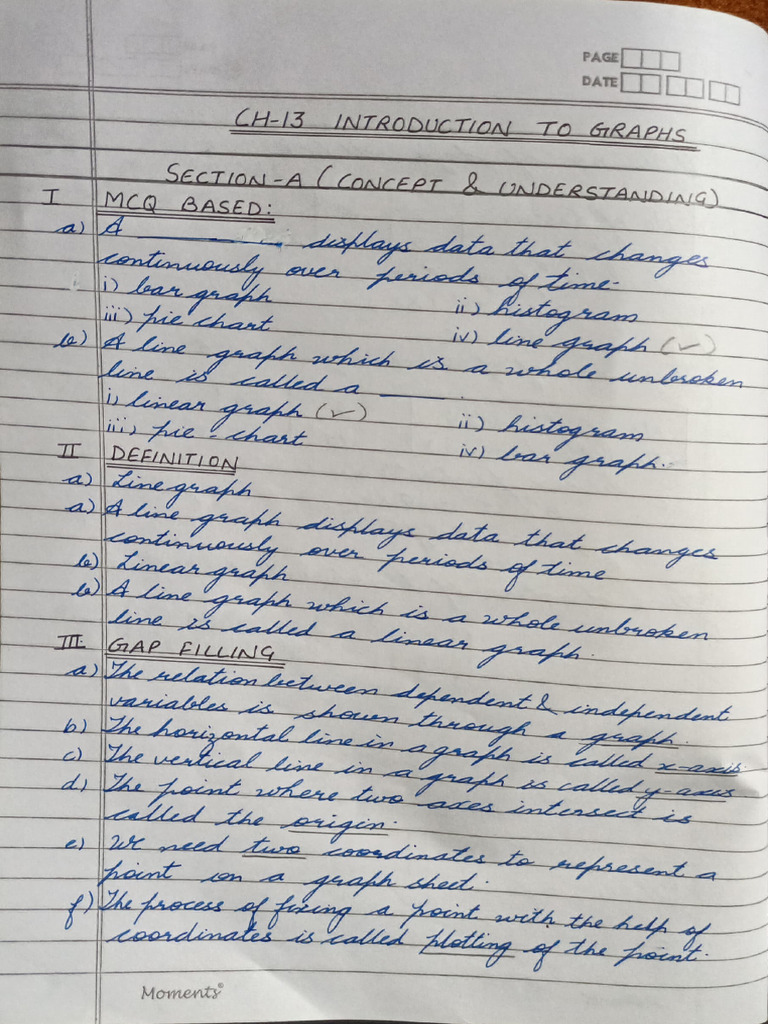 PAGE
DATE
CH-13 INTRODUCTION TO GRAPHS
SECTION-A (CONCEPT & UNDERSTANDING)
I MCQ BASED:
a) A __________ displays data that changes
continuously over periods of time.
i) bar graph ii) histogram
iii) pie chart iv) line graph (✓)
b) A line graph which is a whole unbroken
line is called a _____.
i) linear graph (✓) ii) histogram
iii) pie-chart iv) bar graph.
II DEFINITION
a) Line graph
a) A line graph displays data that changes
continuously over periods of time
b) Linear graph
b) A line graph which is a whole unbroken
line is called a linear graph.
III GAP FILLING
a) The relation between dependent & independent
variables is shown through a graph.
b) The horizontal line in a graph is called x-axis.
c) The vertical line in a graph is called y-axis
d) The point where two axes intersect is
called the origin.
e) We need two coordinates to represent a
point on a graph sheet.
f) The process of fixing a point with the help of
coordinates is called plotting of the point.
Moments